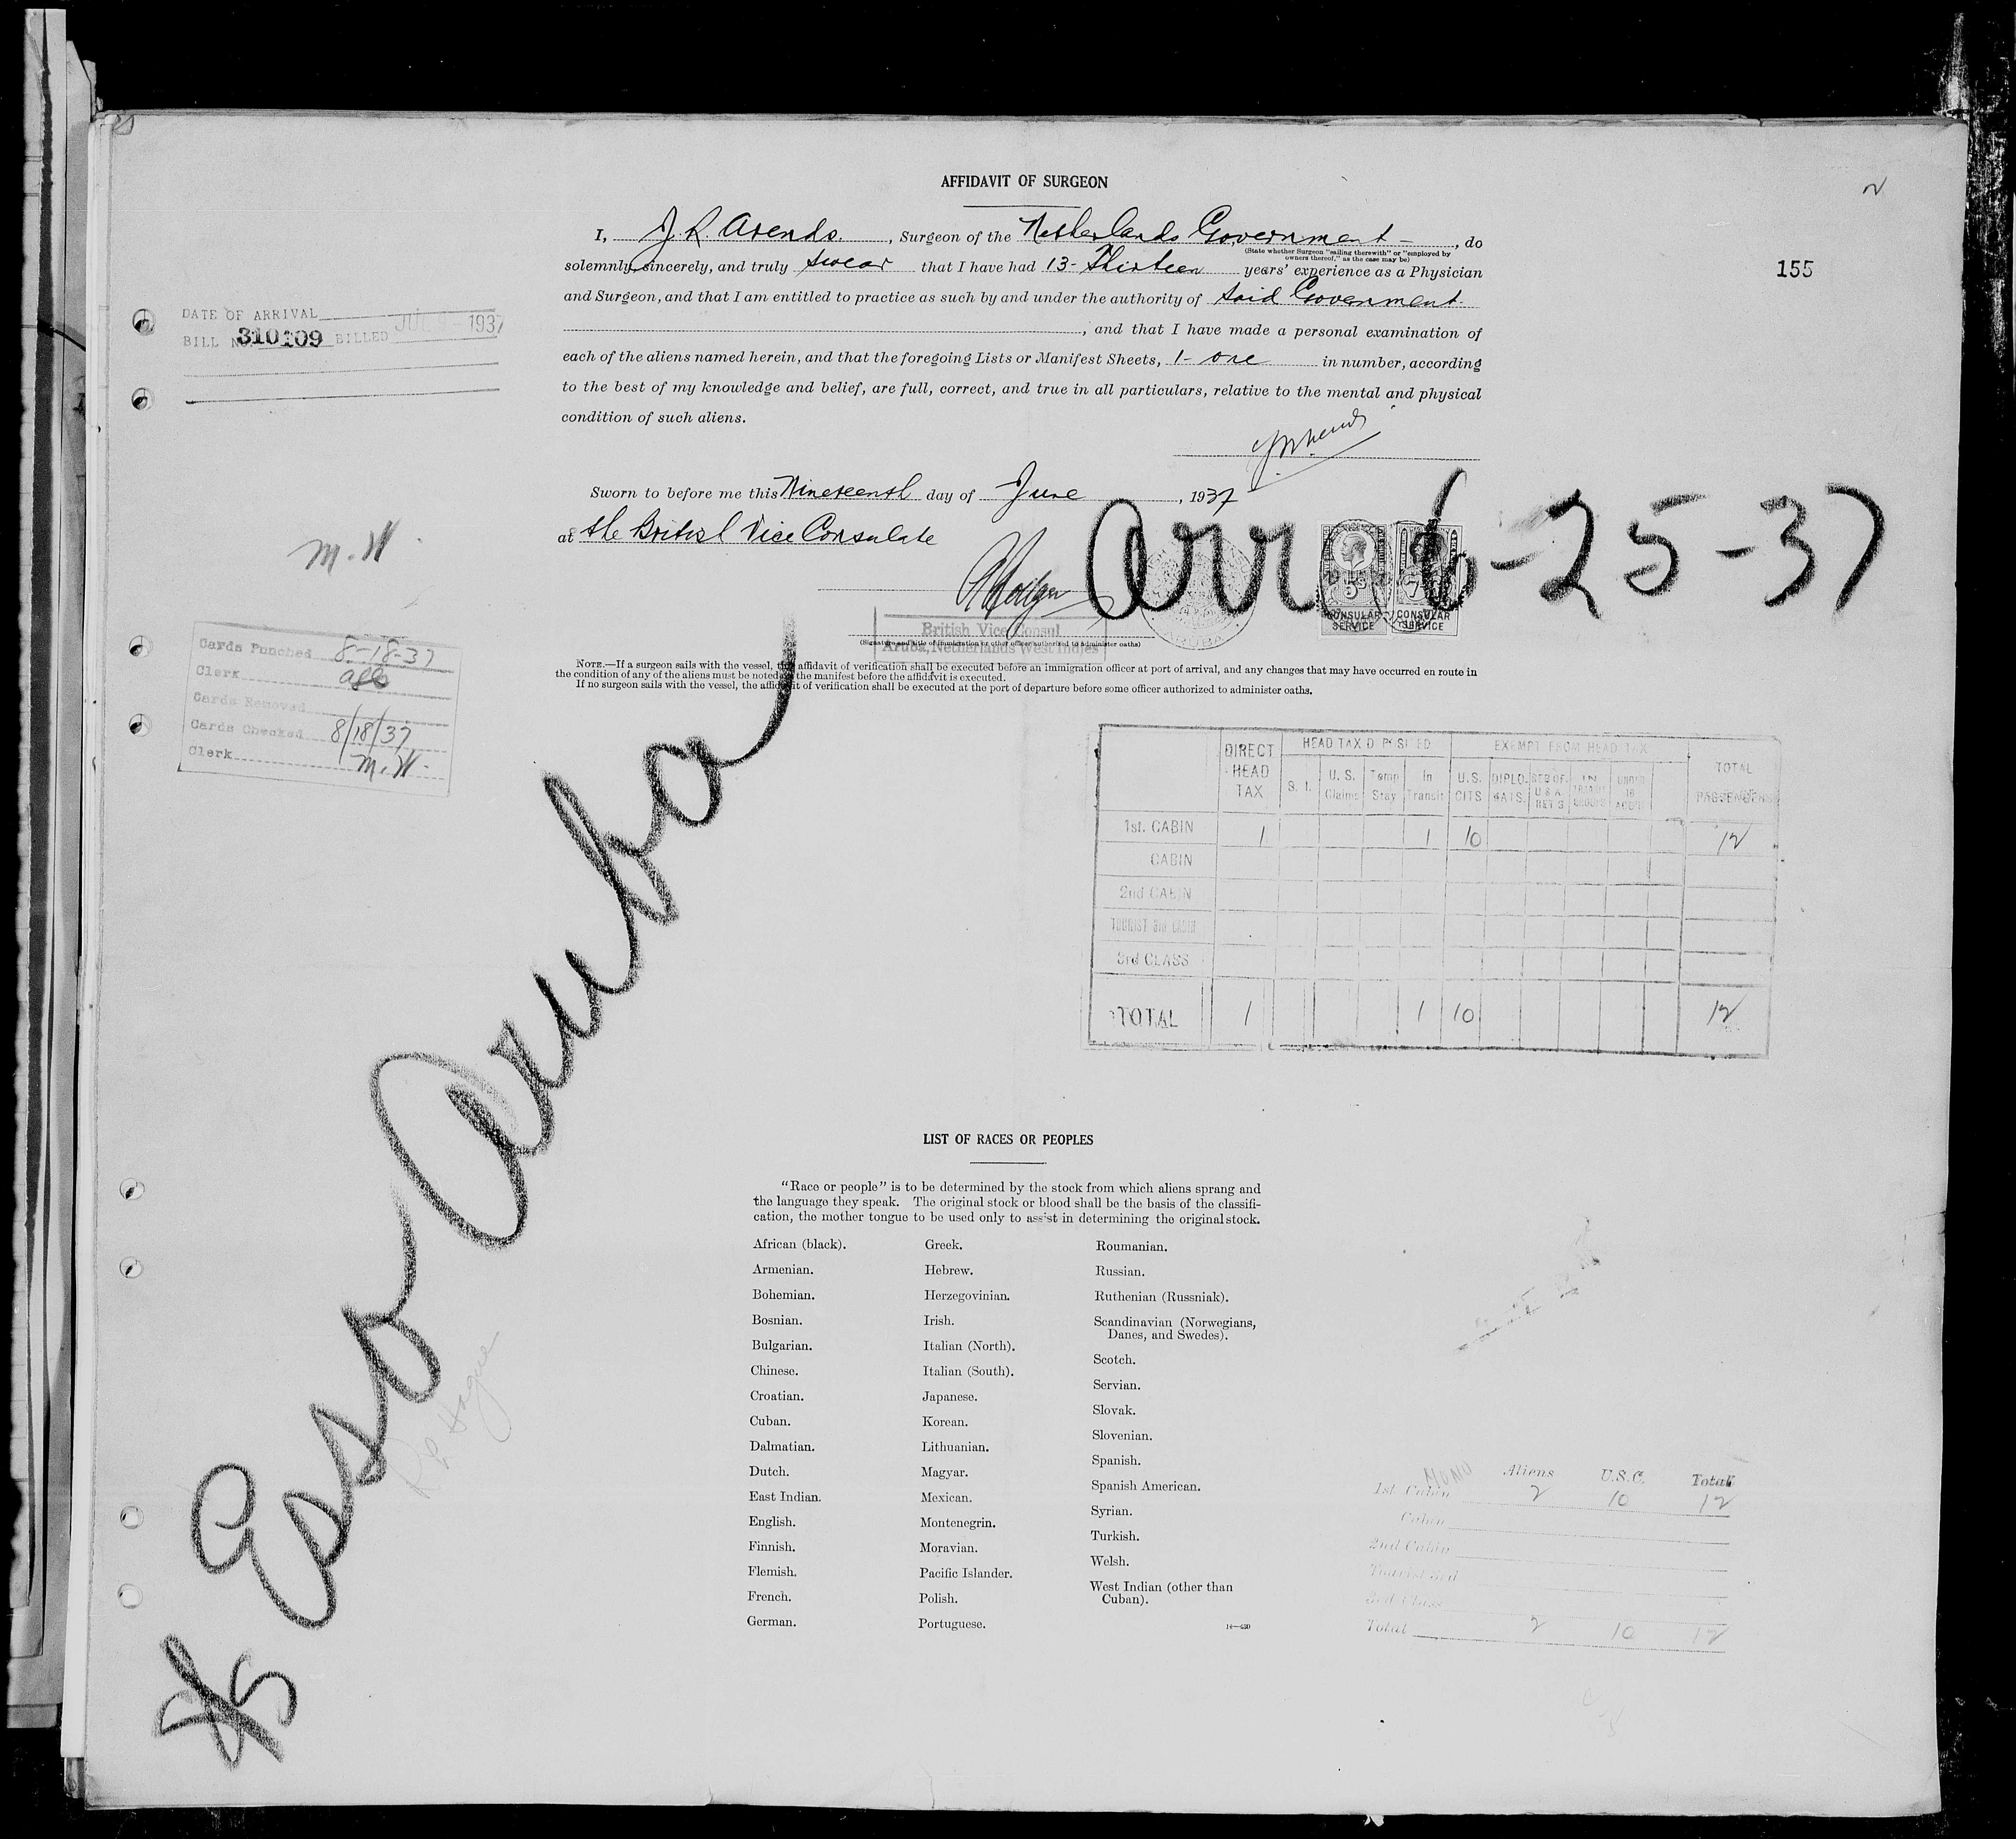 AFFIDAVIT OF SURGEON
I, J. R. Arends. , Surgeon of the Netherlands Government - , do
(State whether Surgeon "sailing therewith" or "employed by
owners thereof," as the case may be)
solemnly, sincerely, and truly swear that I have had 13- Thirteen years' experience as a Physician
and Surgeon, and that I am entitled to practice as such by and under the authority of said Government.
, and that I have made a personal examination of
each of the aliens named herein, and that the foregoing Lists or Manifest Sheets, 1- one in number, according
to the best of my knowledge and belief, are full, correct, and true in all particulars, relative to the mental and physical
condition of such aliens.
155
DATE OF ARRIVAL
BILL No. 310109 BILLED JUL 9 - 1937
Sworn to before me this Nineteenth day of June , 1937
at the British Vice Consulate
Arr 6-25-37
M.W.
5s
CONSULAR SERVICE
CONSULAR SERVICE
ARUBA
British Vice Consul
Aruba, Netherlands West Indies
(Signature and title of immigration or other officer authorized to administer oaths)
NOTE.—If a surgeon sails with the vessel, this affidavit of verification shall be executed before an immigration officer at port of arrival, and any changes that may have occurred en route in
the condition of any of the aliens must be noted on the manifest before the affidavit is executed.
If no surgeon sails with the vessel, the affidavit of verification shall be executed at the port of departure before some officer authorized to administer oaths.
Cards Punched 8-18-37
Clerk
Cards Removed
Cards Checked 8/18/37
Clerk M.W.
DIRECT HEAD TAX HEAD TAX DEPOSITED EXEMPT FROM HEAD TAX TOTAL PASSENGERS
S. I. U. S. Claims Temp Stay In Transit U.S. CITS DIPLO. MATS. RES OF U S A RET'S IN TRANSIT GROUPS UNDER 16 ACCOM
1st. CABIN 1 1 10 12
CABIN
2nd CABIN
TOURIST 3rd CABIN
3rd CLASS
TOTAL 1 1 10 12
SS Esso Aruba
LIST OF RACES OR PEOPLES
"Race or people" is to be determined by the stock from which aliens sprang and
the language they speak. The original stock or blood shall be the basis of the classifi-
cation, the mother tongue to be used only to assist in determining the original stock.
African (black).
Armenian.
Bohemian.
Bosnian.
Bulgarian.
Chinese.
Croatian.
Cuban.
Dalmatian.
Dutch.
East Indian.
English.
Finnish.
Flemish.
French.
German.
Greek.
Hebrew.
Herzegovinian.
Irish.
Italian (North).
Italian (South).
Japanese.
Korean.
Lithuanian.
Magyar.
Mexican.
Montenegrin.
Moravian.
Pacific Islander.
Polish.
Portuguese.
Roumanian.
Russian.
Ruthenian (Russniak).
Scandinavian (Norwegians,
Danes, and Swedes).
Scotch.
Servian.
Slovak.
Slovenian.
Spanish.
Spanish American.
Syrian.
Turkish.
Welsh.
West Indian (other than
Cuban).
Aliens U.S.C. Total
1st Cabin 2 10 12
Cabin
2nd Cabin
Tourist 3rd
3rd Class
Total 2 10 12